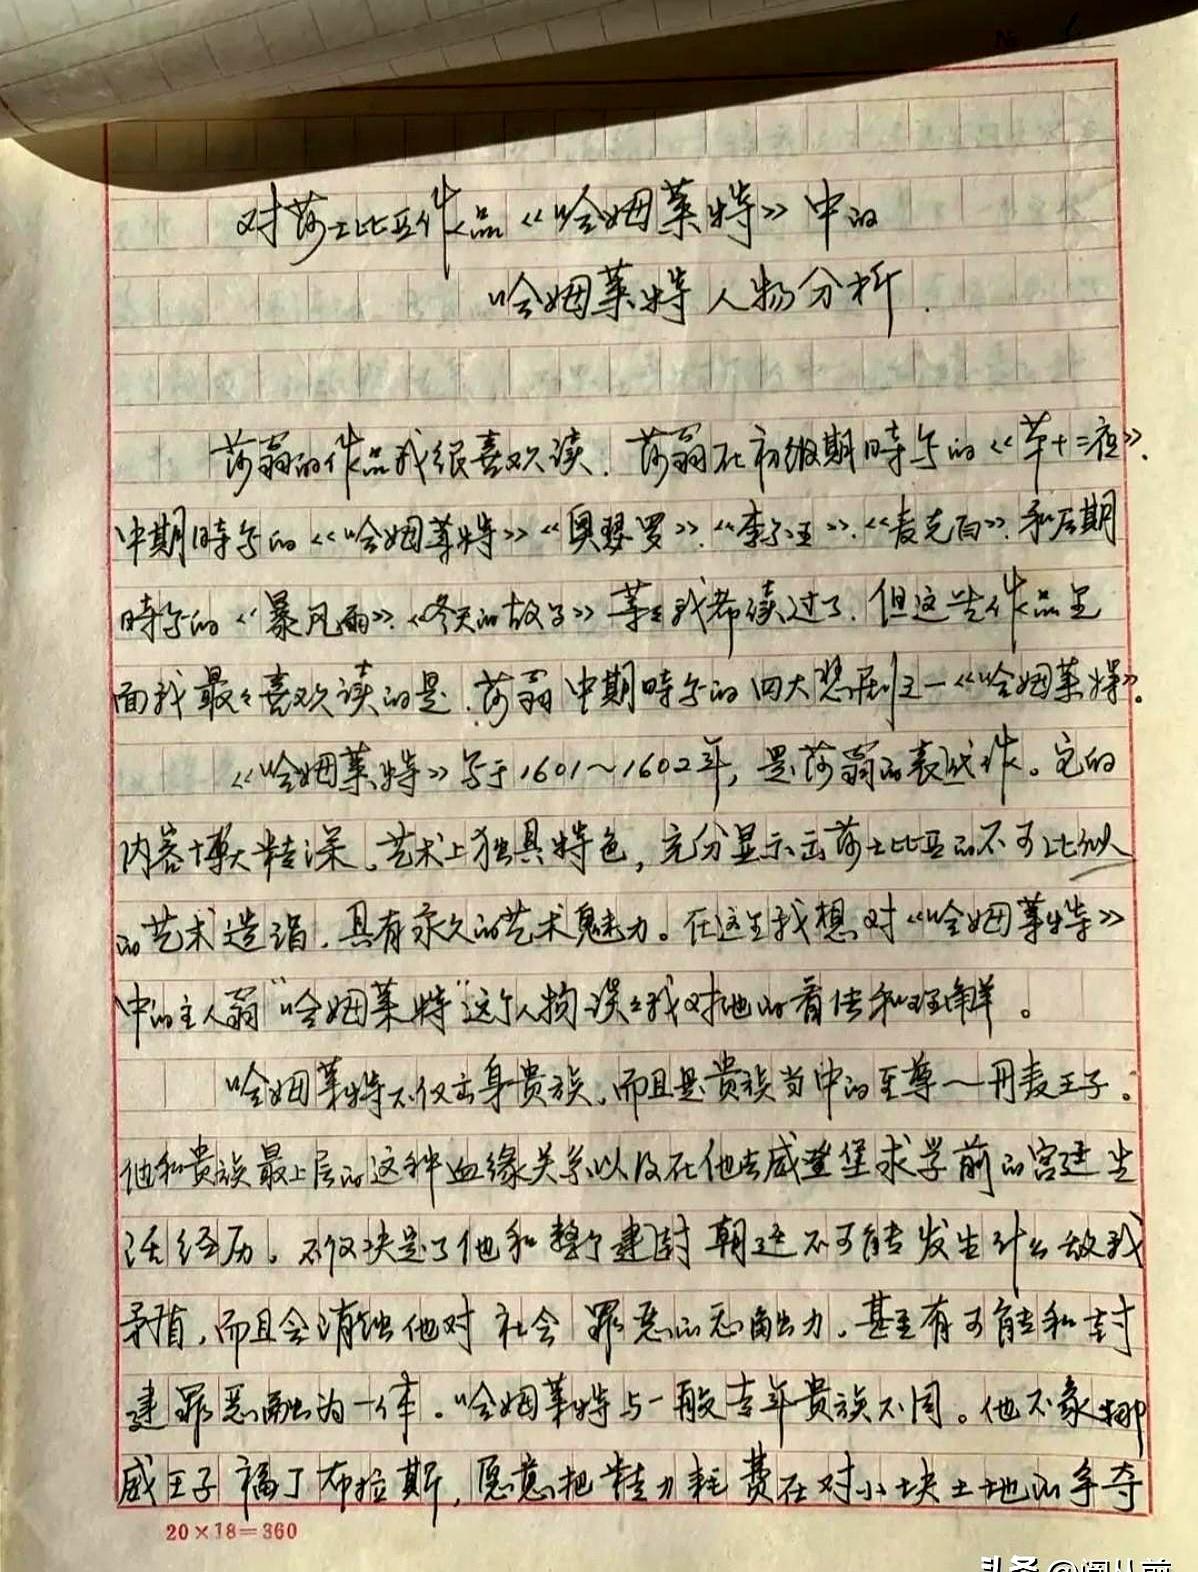 № 1
对莎士比亚作品《哈姆莱特》中的
哈姆莱特人物分析.
莎翁的作品我很喜欢读.莎翁在初级期時写的《苐十二夜》.
中期時写的《哈姆莱特》《奥瑟罗》.《李尔王》.《麦克白》.和后期
時写的《暴风雨》.《冬天的故事》等等我都读过了.但这些作品里
面我最最喜欢读的是.莎翁中期時写的四大悲剧之一《哈姆莱特》.
《哈姆莱特》写于1601～1602年,是莎翁的表代作。它的
内容博大精深.艺术上独具特色,充分显示出莎士比亚的不可比拟
的艺术造诣.具有永久的艺术魅力。在这里我想对《哈姆莱特》
中的主人翁"哈姆莱特"这个人物谈谈我对他的看法和理解。
哈姆莱特不仅出身贵族.而且是贵族当中的至尊—丹麦王子。
他和贵族最上层的这种血缘关系以及在他去威登堡求学前的宫廷生
活经历。不仅决定了他和整个建封朝廷不可能发生什么敌我
矛盾.而且会消蚀他对社会罪恶的 力.甚至有可能和封
建罪恶融为一体。哈姆莱特与一般青年贵族不同。他不象挪
威王子福丁布拉斯,愿意把精力耗费在对小块土地的争夺
20×18=360
头条 @